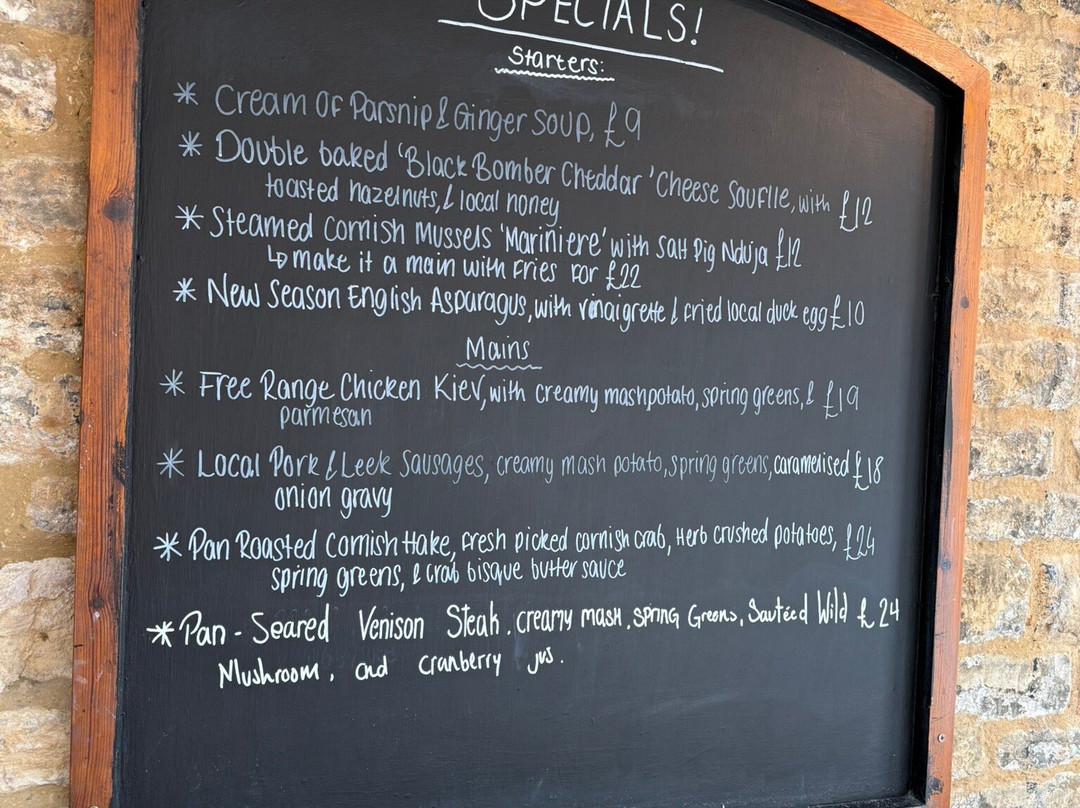 SPECIALS!
Starters:
* Cream Of Parsnip & Ginger Soup, £9
* Double baked 'Black Bomber Cheddar' Cheese Souflle, with £12
toasted hazelnuts, & local honey
* Steamed Cornish Mussels 'Mariniere' with Salt Pig Nduja £12
↳ make it a main with Fries For £22
* New Season English Asparagus, with vinaigrette & fried local duck egg £10
Mains
* Free Range Chicken Kiev, with creamy mashpotato, spring greens, & £19
parmesan
* Local Pork & Leek Sausages, creamy mash potato, spring greens, caramelised £18
onion gravy
* Pan Roasted Cornish Hake, fresh picked cornish crab, Herb crushed potatoes, £24
spring greens, & crab bisque butter sauce
* Pan - Seared Venison Steak, creamy mash, spring Greens, Sautéed Wild £24
Mushroom, and cranberry jus.